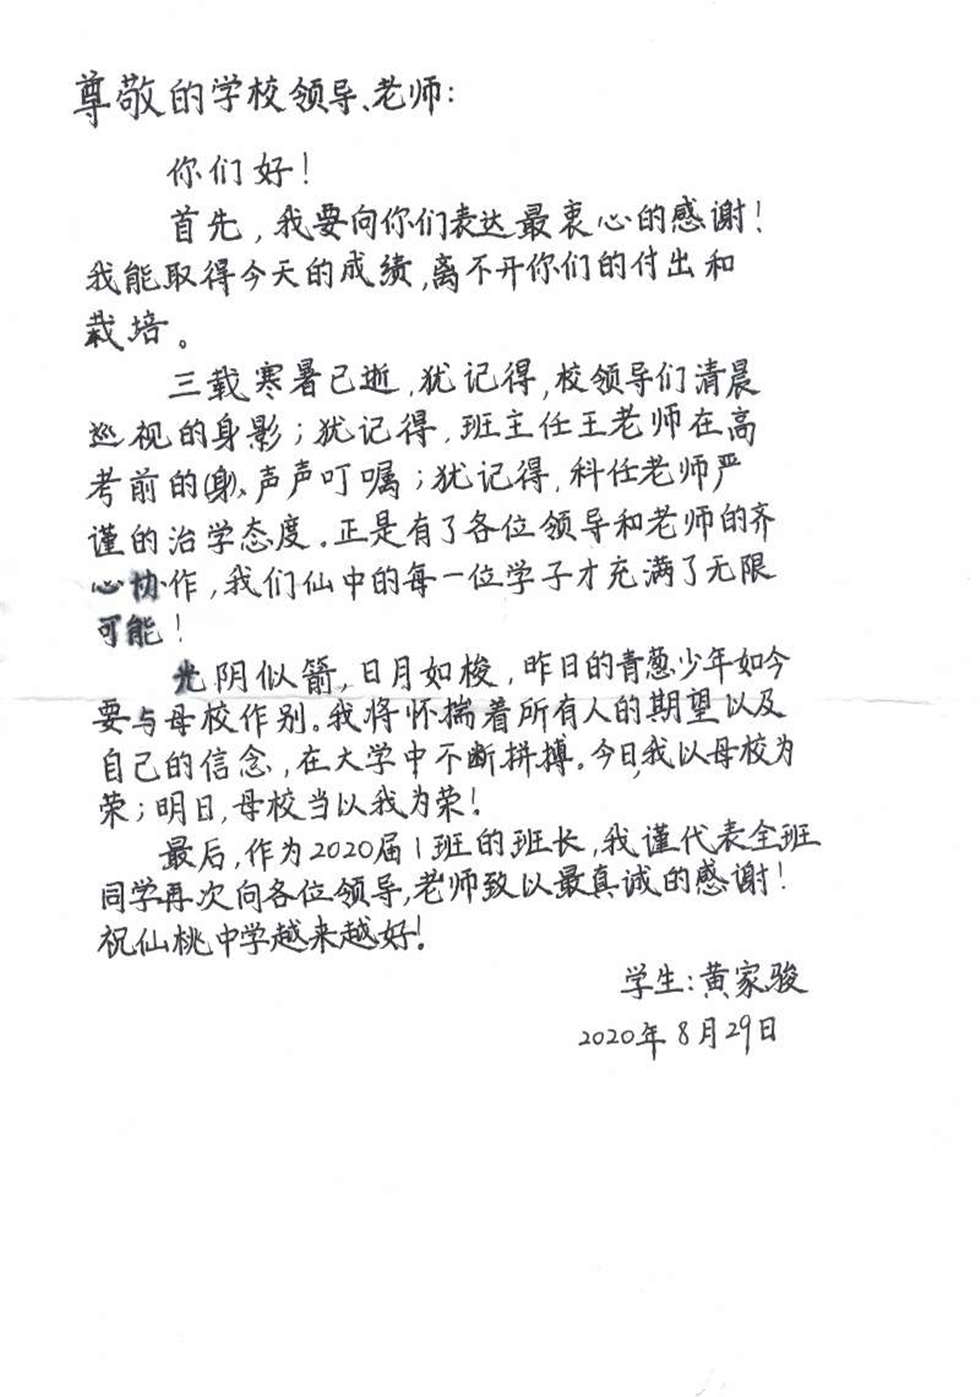 尊敬的学校领导、老师：
你们好！
首先，我要向你们表达最衷心的感谢！
我能取得今天的成绩，离不开你们的付出和
栽培。
三载寒暑已逝，犹记得，校领导们清晨
巡视的身影；犹记得，班主任王老师在高
考前的声声叮嘱；犹记得，科任老师严
谨的治学态度。正是有了各位领导和老师的齐
心协作，我们仙中的每一位学子才充满了无限
可能！
光阴似箭，日月如梭，昨日的青葱少年如今
要与母校作别。我将怀揣着所有人的期望以及
自己的信念，在大学中不断拼搏。今日，我以母校为
荣；明日，母校当以我为荣！
最后，作为2020届1班的班长，我谨代表全班
同学再次向各位领导，老师致以最真诚的感谢！
祝仙桃中学越来越好！
学生：黄家骏
2020年8月29日